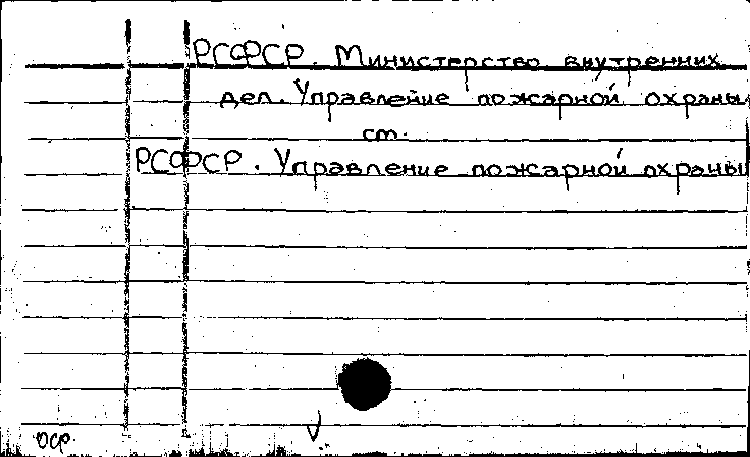 РСФСР. Министерство внутренних
дел. Управление пожарной охраны
см.
РСФСР. Управление пожарной охраны
оср.